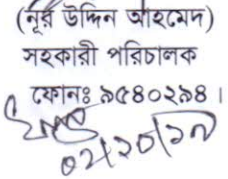 (নূর উদ্দিন আহমেদ)
সহকারী পরিচালক
ফোনঃ ৯৫৪০২৯৪ ।